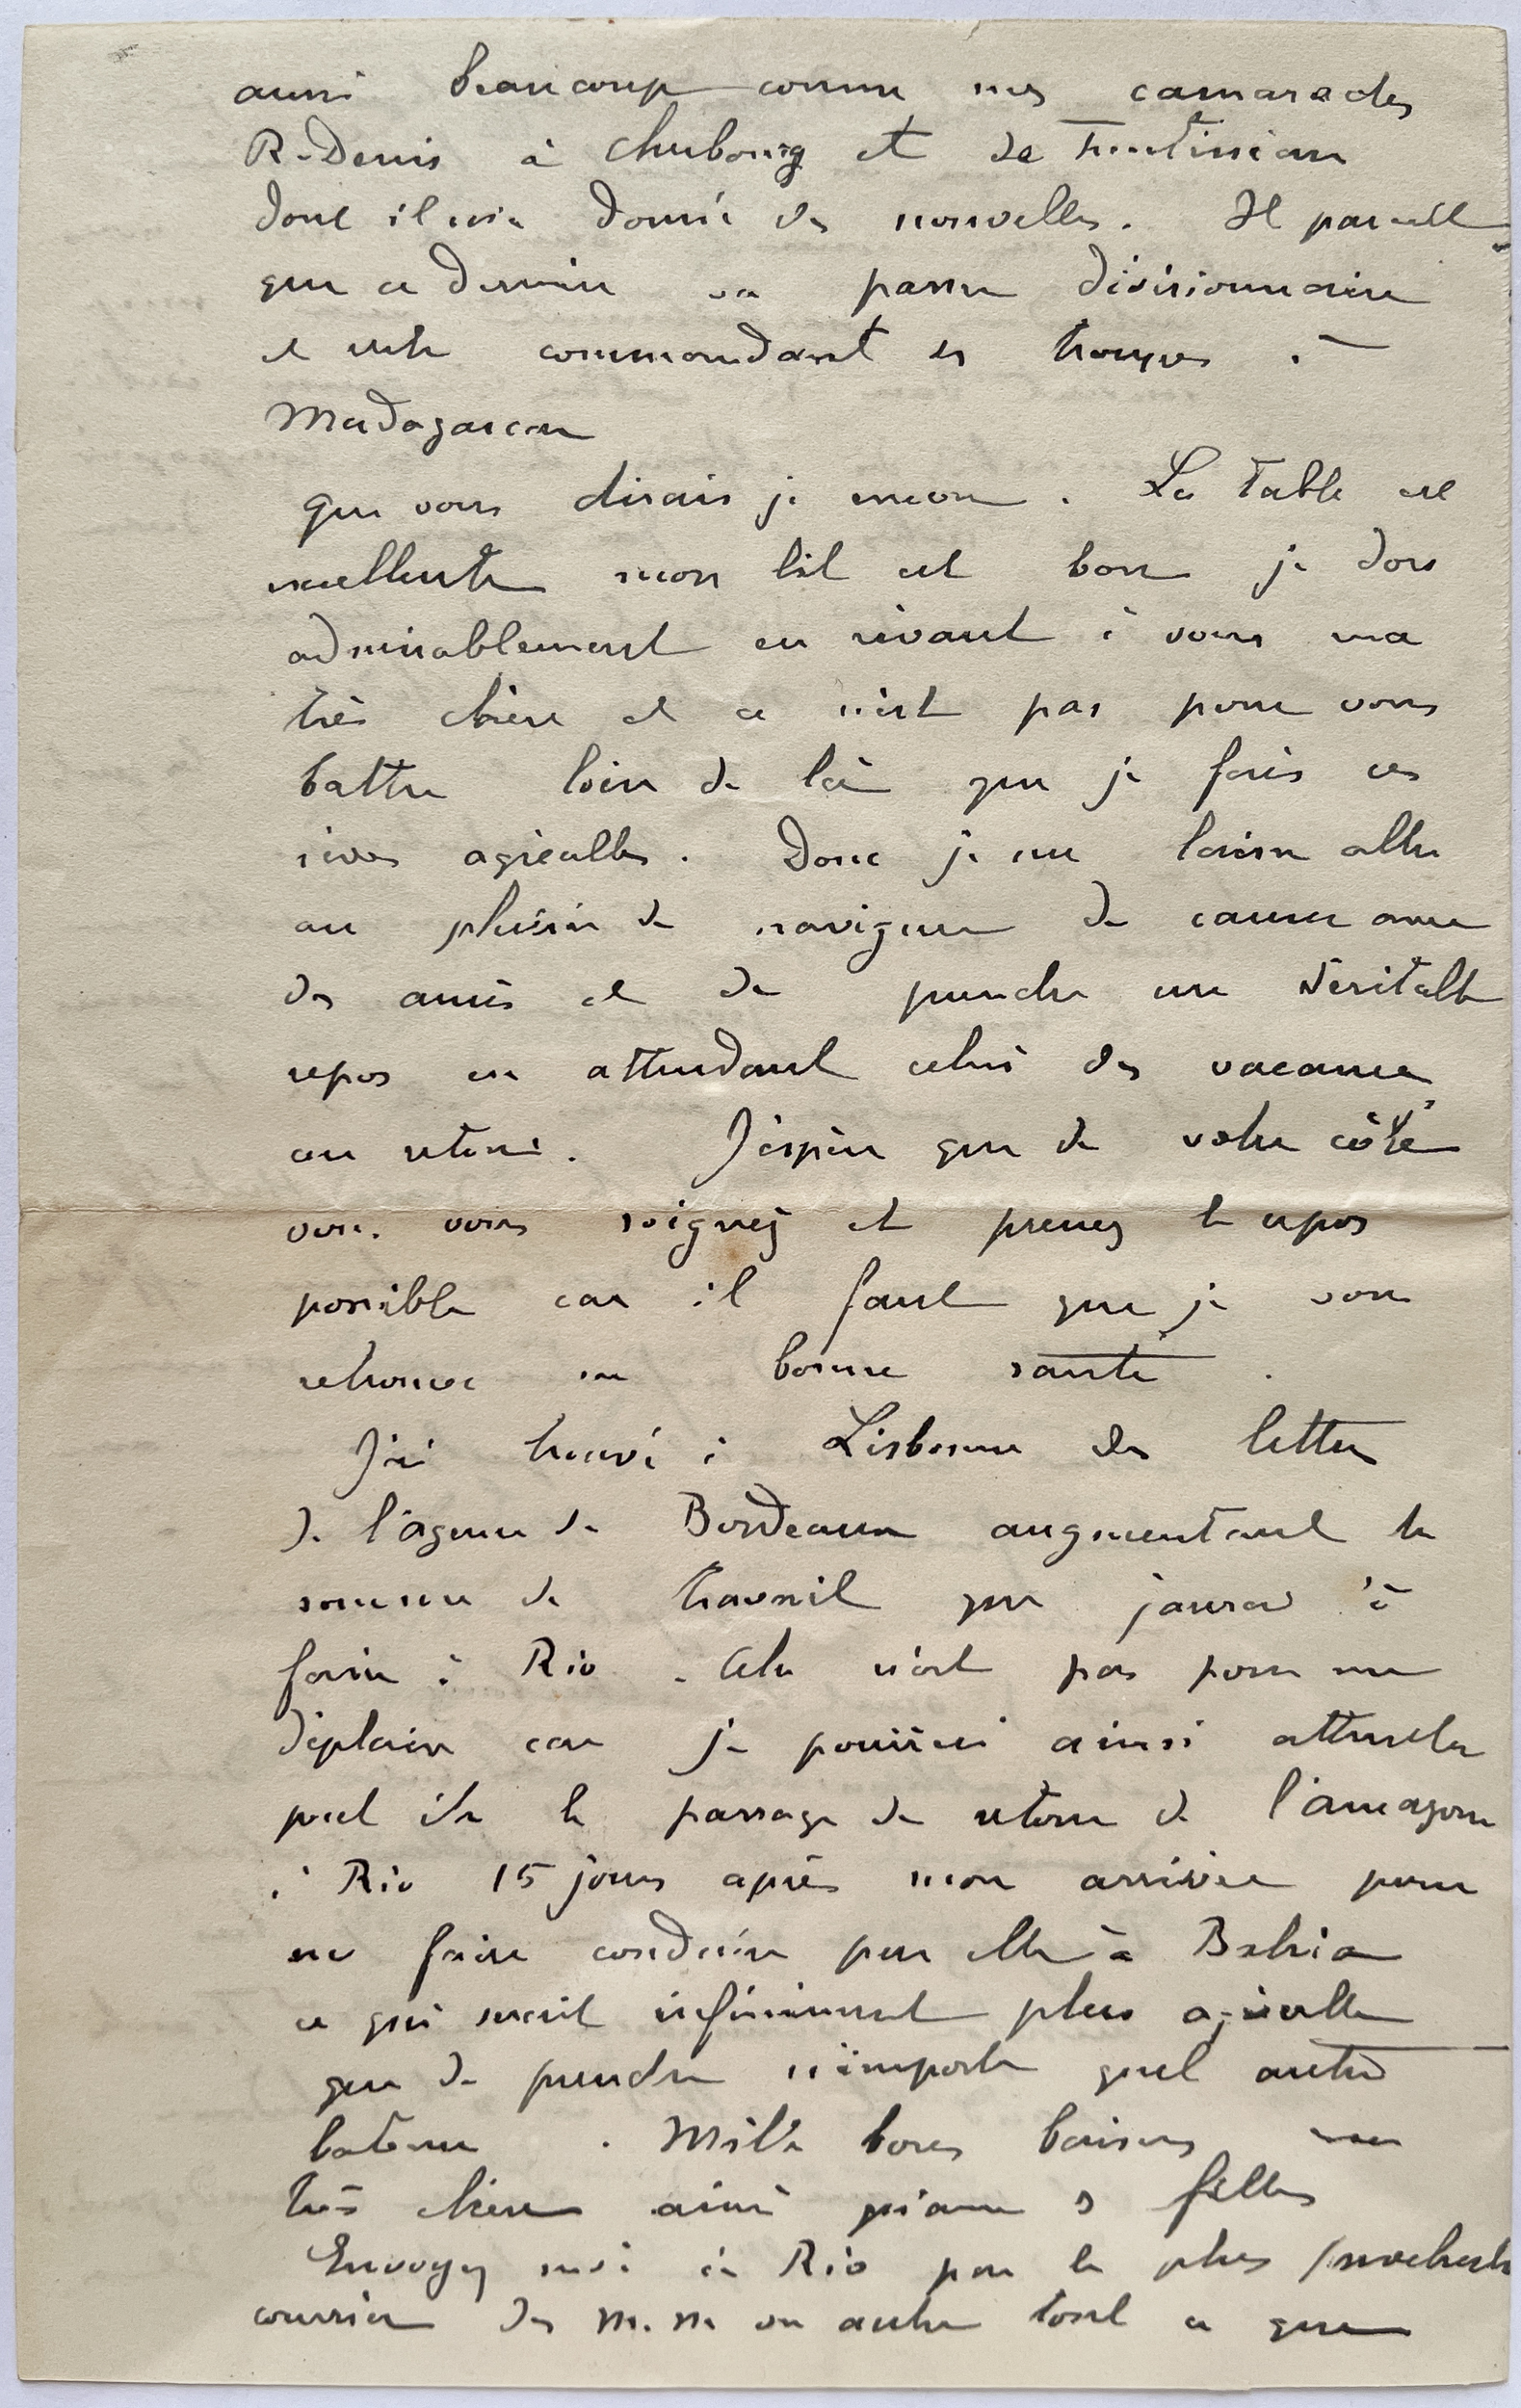 aussi beaucoup comme mes camarades
R. Denis à Cherbourg et de Trentinian
dont il m'a donné des nouvelles. Il parait
que ce dernier va passer divisionnaire
et votre commandant es troupes à
Madagascar
que vous dirais je encore. La table est
excellente mon lit est bon je dors
admirablement en rêvant à vous ma
très chère et ce n'est pas pour vous
battre loin de là que je fais ces
rêves agréables. Donc je me laisse aller
au plaisir de naviguer de causer avec
des amis et de prendre un véritable
repos en attendant celui des vacances
au retour. J'espère que de votre côté
vous vous soignez et prenez le repos
possible car il faut que je vous
retrouve en bonne santé.
J'ai trouvé à Lisbonne des lettres
de l'agence de Bordeaux augmentant la
somme de travail que j'aurai à
faire à Rio. Cela n'est pas pour me
déplaire car je pourrai ainsi attendre
peut être le passage de retour de l'amazone
à Rio 15 jours après mon arrivée pour
me faire conduire par elle à Bahia
ce qui serait infiniment plus agréable
que de prendre n'importe quel autre
bateau. Mille bons baisers ma
très chère ainsi qu'aux 3 filles
Envoyez moi à Rio par le plus prochain
courrier des M. M ou autre tout ce que